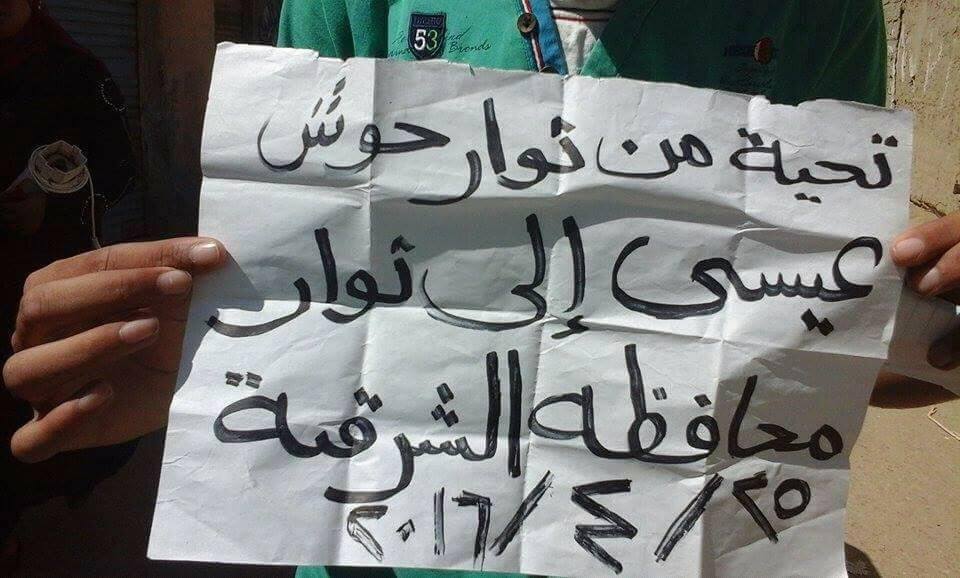 53
Bronds
تحية من ثوار حوش
عيسى إلى ثوار
محافظه الشرقية
٢٥/٤/٢٠١٦